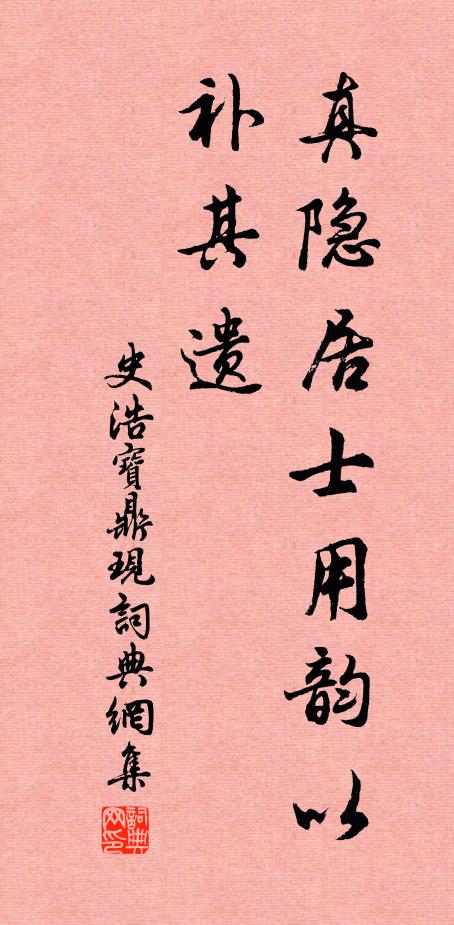 真隐居士用韵以
补其遗
史浩寶鼎現詞典網集
詞典网印